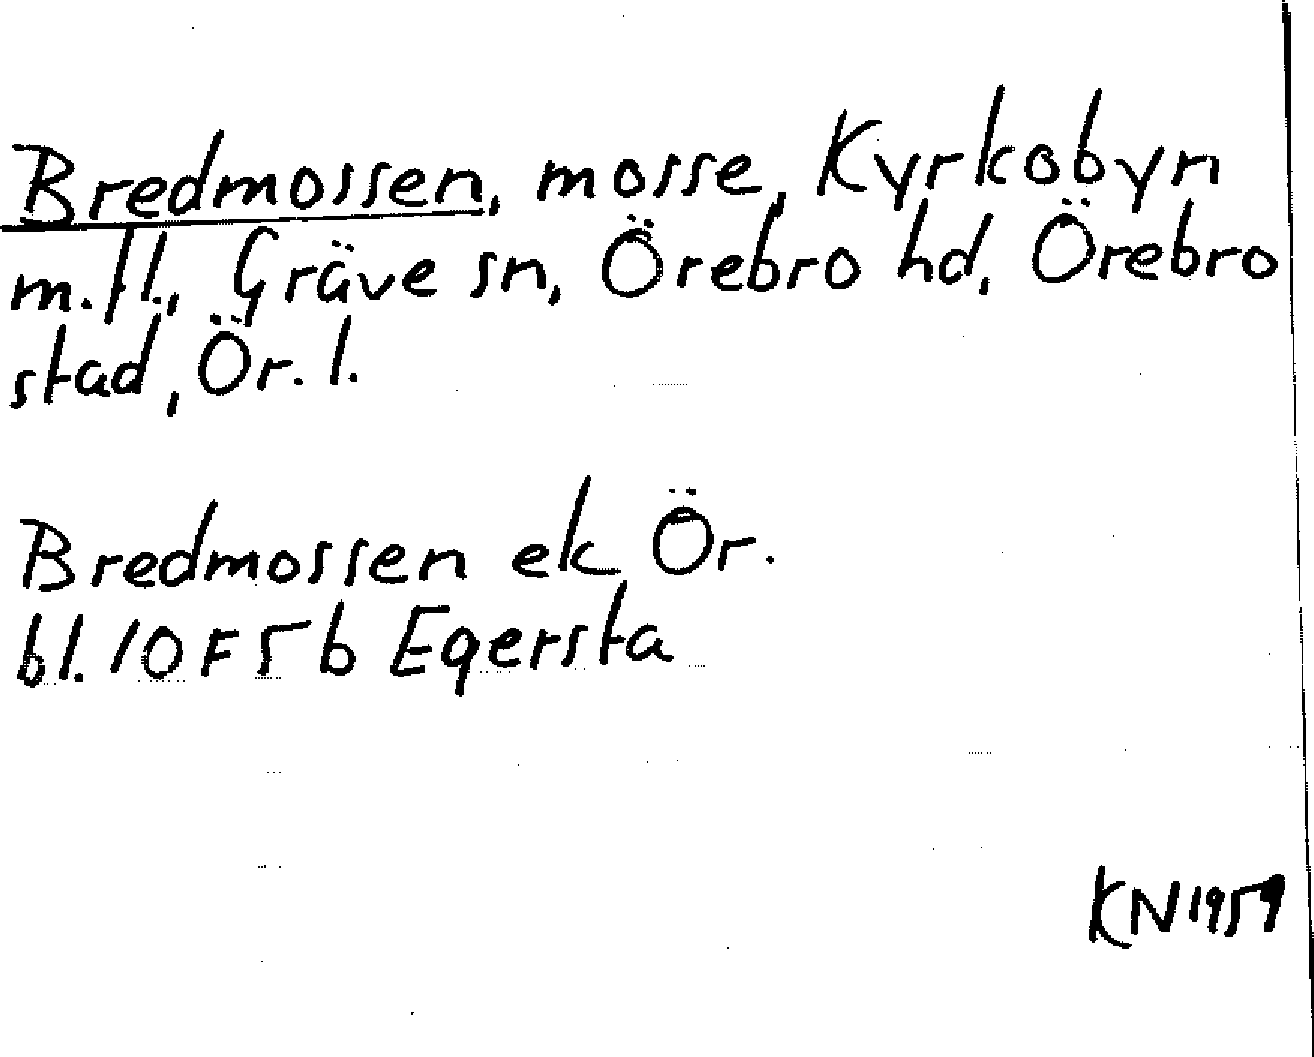 Bredmossen, mosse, Kyrkobyn
m.fl., Gräve sn, Örebro hd, Örebro
stad, Ör. l.
Bredmossen ek Ör.
bl. 10 F 5 b Egersta
KN 1959